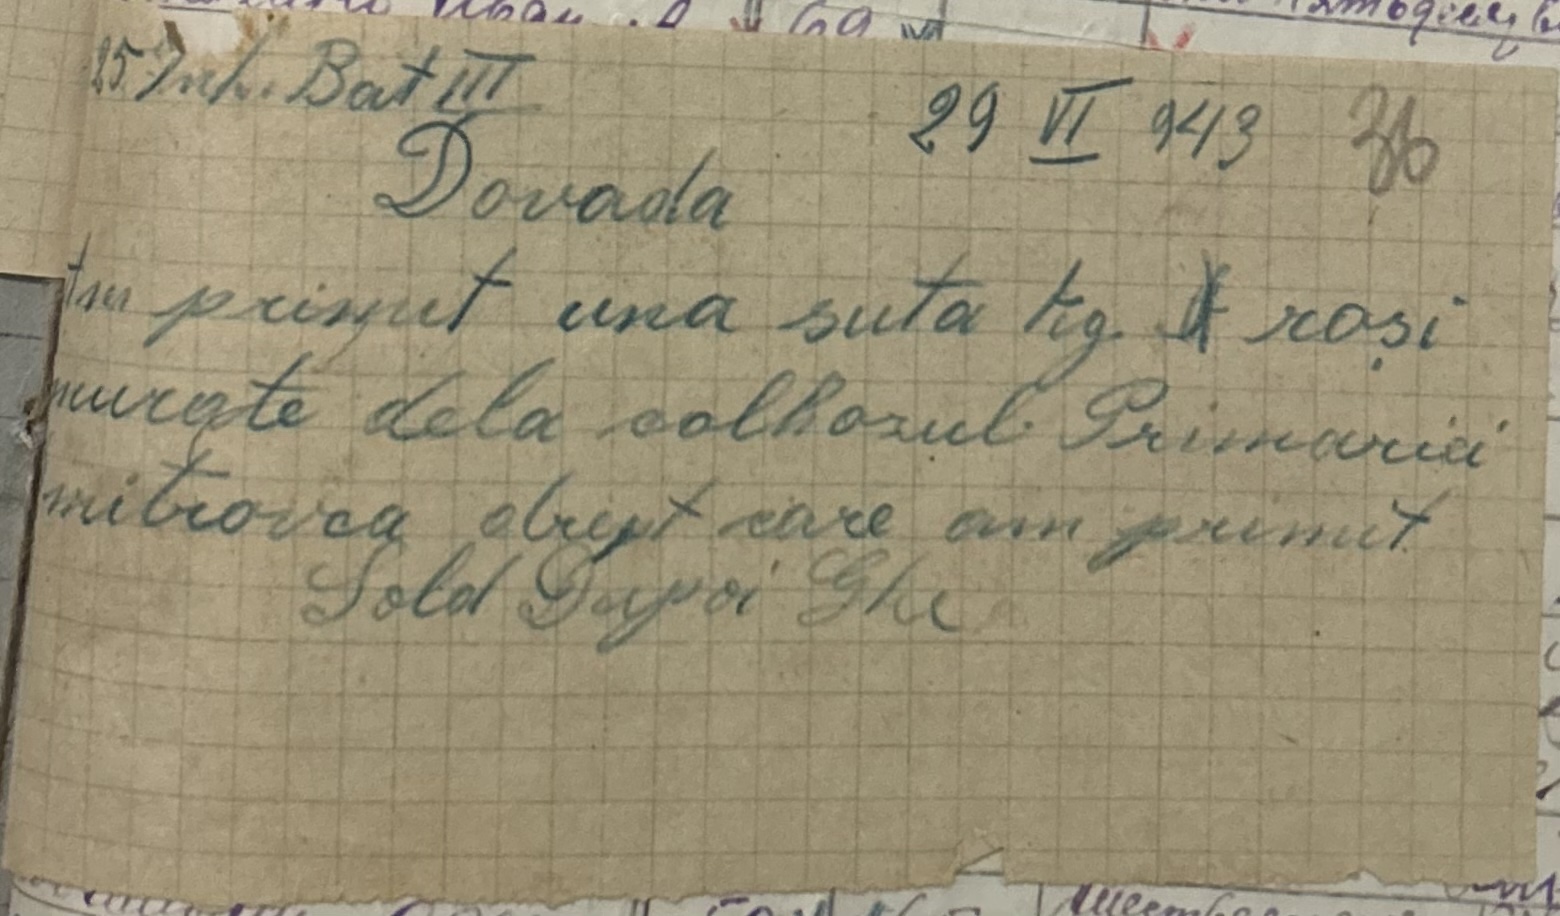 25 Inf. Bat III
29 VI 943 36
Dovada
Am primit una suta kg. roși
murate dela colhozul Primariei
mitrovca drept care am primit.
Sold Dupoi Ghe